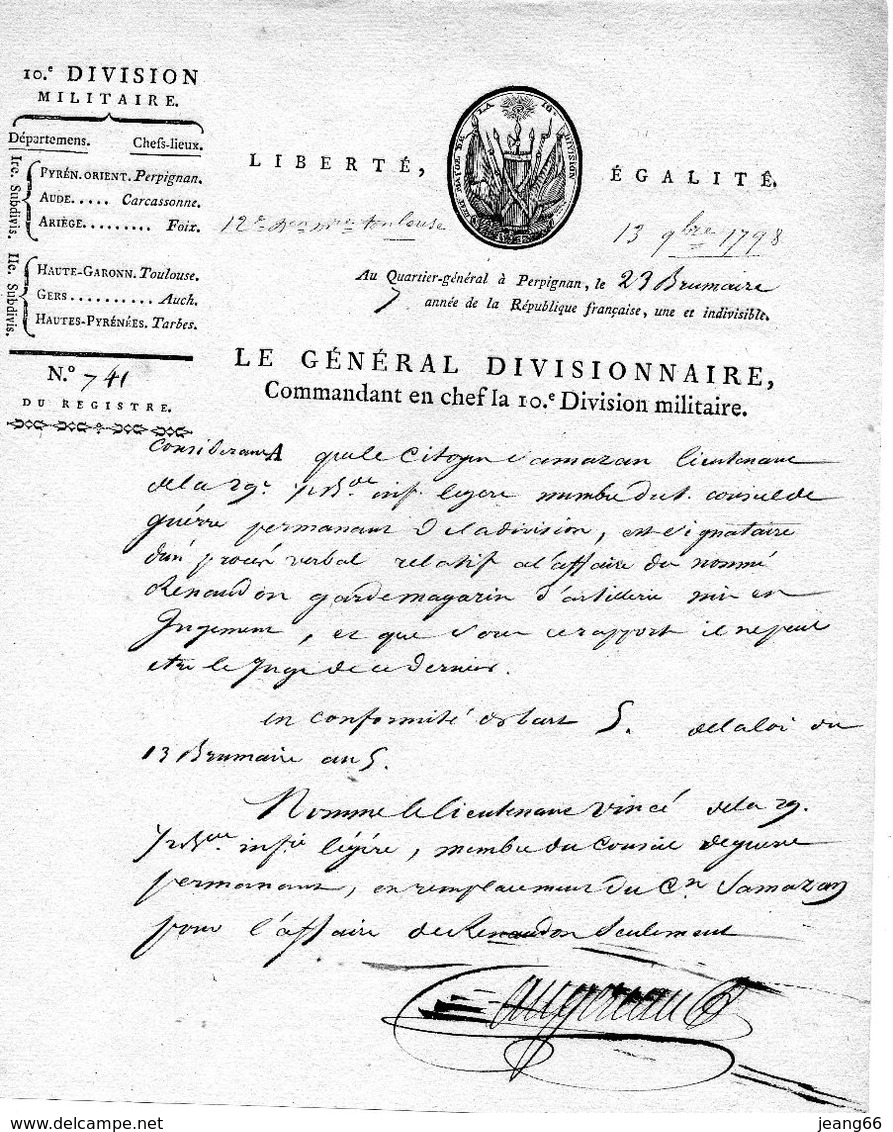 10.e DIVISION
MILITAIRE.
Départemens. Chefs-lieux.
Ire. Subdivis.
PYRÉN. ORIENT. Perpignan.
AUDE..... Carcassonne.
ARIÈGE......... Foix.
IIe. Subdivis.
HAUTE-GARONN. Toulouse.
GERS.......... Auch.
HAUTES-PYRÉNÉES. Tarbes.
N.° 741
DU REGISTRE.
LIBERTÉ, ÉGALITÉ.
LA 10e DIVISION
toulouse
13 9bre 1798
Au Quartier-général à Perpignan, le 23 Brumaire
7 année de la République française, une et indivisible.
LE GÉNÉRAL DIVISIONNAIRE,
Commandant en chef la 10.e Division militaire.
Considerant que le Citoyen Samazan lieutenant
de la 29e 1/2 B.de inf. legere membre du 1. conseil de
guérre permanant de la division, est signataire
d'un procés verbal relatif a l'affaire du nommé
Renaudon garde magazin d'artillerie mis en
Jugement, et que sous ce rapport il ne peut
etre le Juge de ce dernier.
en conformité de l'art 5. de la loi du
13 Brumaire an 5.
Nomme le lieutenant vincé de la 29.
1/2 B.de inf.ie légére, membre du Conseil de guerre
permanant, en remplacement du C.n Samazan
pour l'affaire de Renaudon Seulement
Augereau
www.delcampe.net jeang66